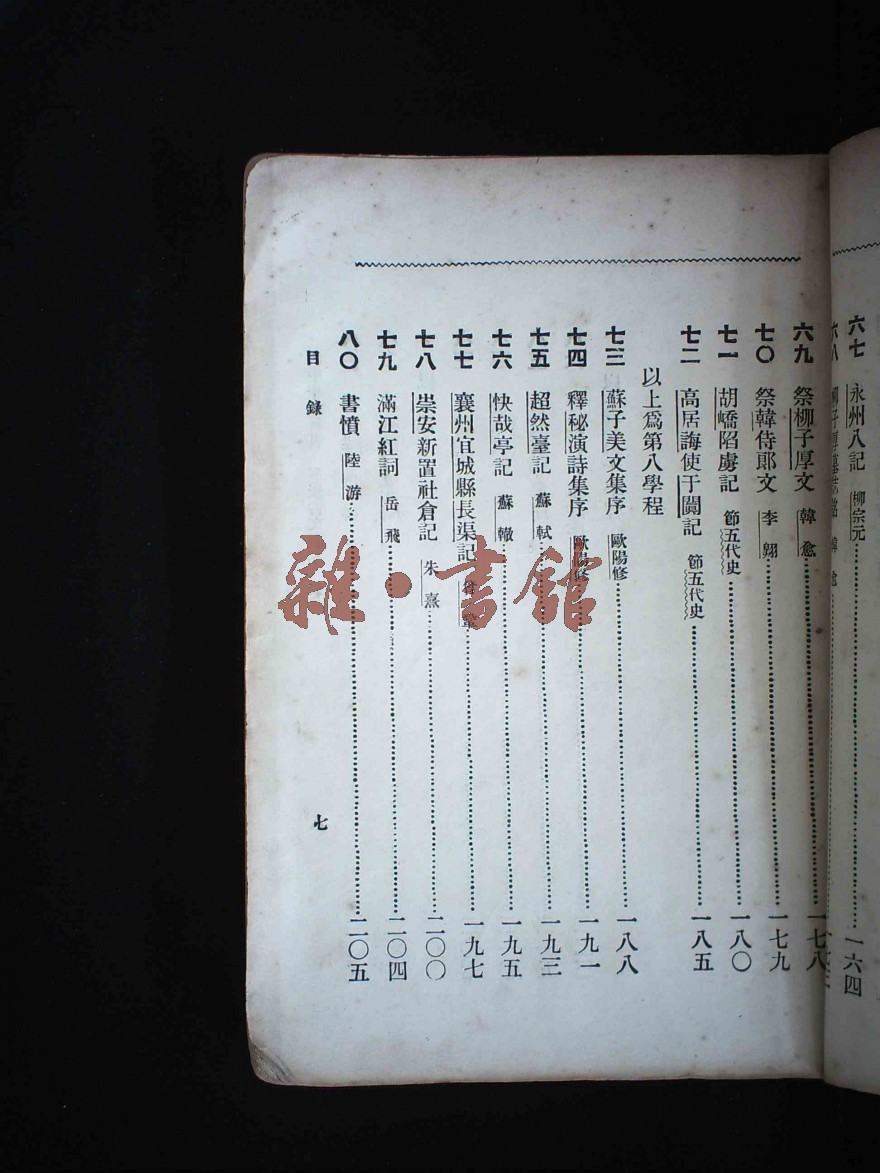 六七 永州八記 柳宗元 一六四
六八 柳子厚墓誌銘 韓愈
六九 祭柳子厚文 韓愈 一七八
七〇 祭韓侍郎文 李翱 一七九
七一 胡嶠陷虜記 節五代史 一八〇
七二 高居誨使于闐記 節五代史 一八五
以上爲第八學程
七三 蘇子美文集序 歐陽修 一八八
七四 釋秘演詩集序 歐陽修 一九一
七五 超然臺記 蘇軾 一九三
七六 快哉亭記 蘇轍 一九五
七七 襄州宜城縣長渠記 曾鞏 一九七
七八 崇安新置社倉記 朱熹 二〇〇
七九 滿江紅詞 岳飛 二〇四
八〇 書憤 陸游 二〇五
目錄
七
雜·書館